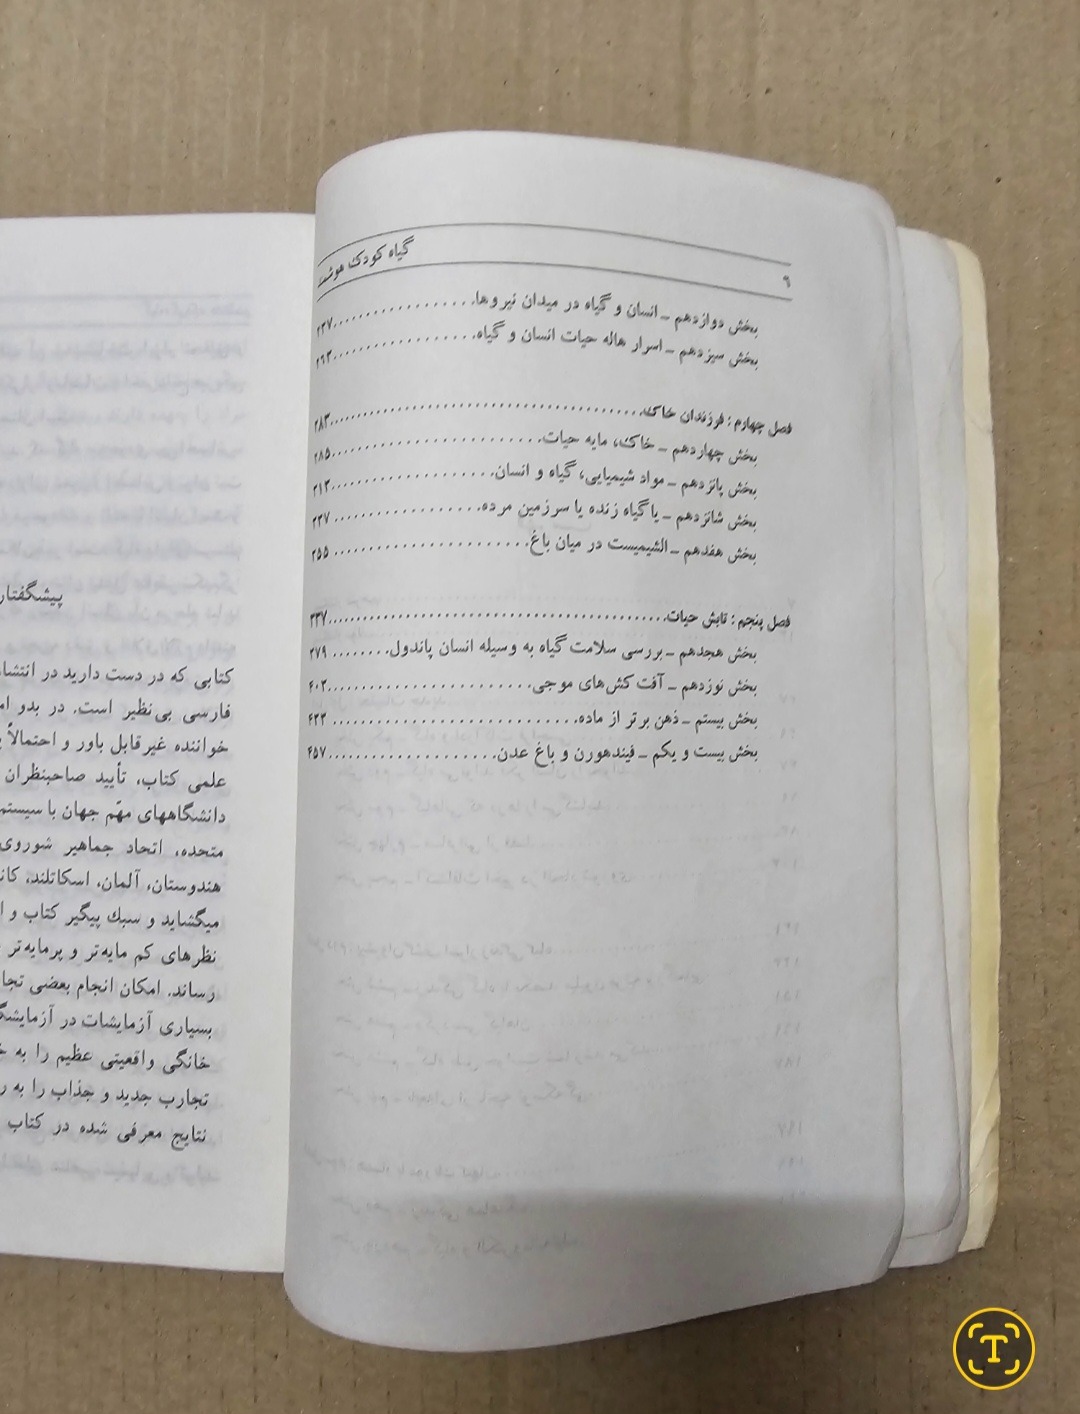 ۶
گیاه کودک هوشمند
بخش دوازدهم ـ انسان و گیاه در میدان نیروها............۲۳۷
بخش سیزدهم ـ اسرار هاله حیات انسان و گیاه............۲۶۳
فصل چهارم: فرزندان خاک............۲۸۳
بخش چهاردهم ـ خاک، مایه حیات............۲۸۵
بخش پانزدهم ـ مواد شیمیایی، گیاه و انسان............۳۱۳
بخش شانزدهم ـ یا گیاه زنده یا سرزمین مرده............۳۳۷
بخش هفدهم ـ الشیمیست در میان باغ............۳۵۵
فصل پنجم: تابش حیات............۳۳۷
بخش هجدهم ـ بررسی سلامت گیاه به وسیله انسان پاندول............۳۷۹
بخش نوزدهم ـ آفت کش‌های موجی............۴۰۳
بخش بیستم ـ ذهن برتر از ماده............۴۳۳
بخش بیست و یکم ـ فیندهورن و باغ عدن............۴۵۷
پیشگفتار
کتابی که در دست دارید در
فارسی بی‌نظیر است. در بدو
خواننده غیرقابل باور و احتمالاً
علمی کتاب، تأیید صاحبنظران
دانشگاههای مهّم جهان با سیستم
متحده، اتحاد جماهیر شوروی
هندوستان، آلمان، اسکاتلند،
میگشاید و سبک پیگیر کتاب و
نظرهای کم مایه‌تر و پرمایه‌تر
رساند. امکان انجام بعضی
بسیاری آزمایشات در
خانگی واقعیتی عظیم را به
تجارب جدید و جذاب را به
نتایج معرفی شده در کتاب